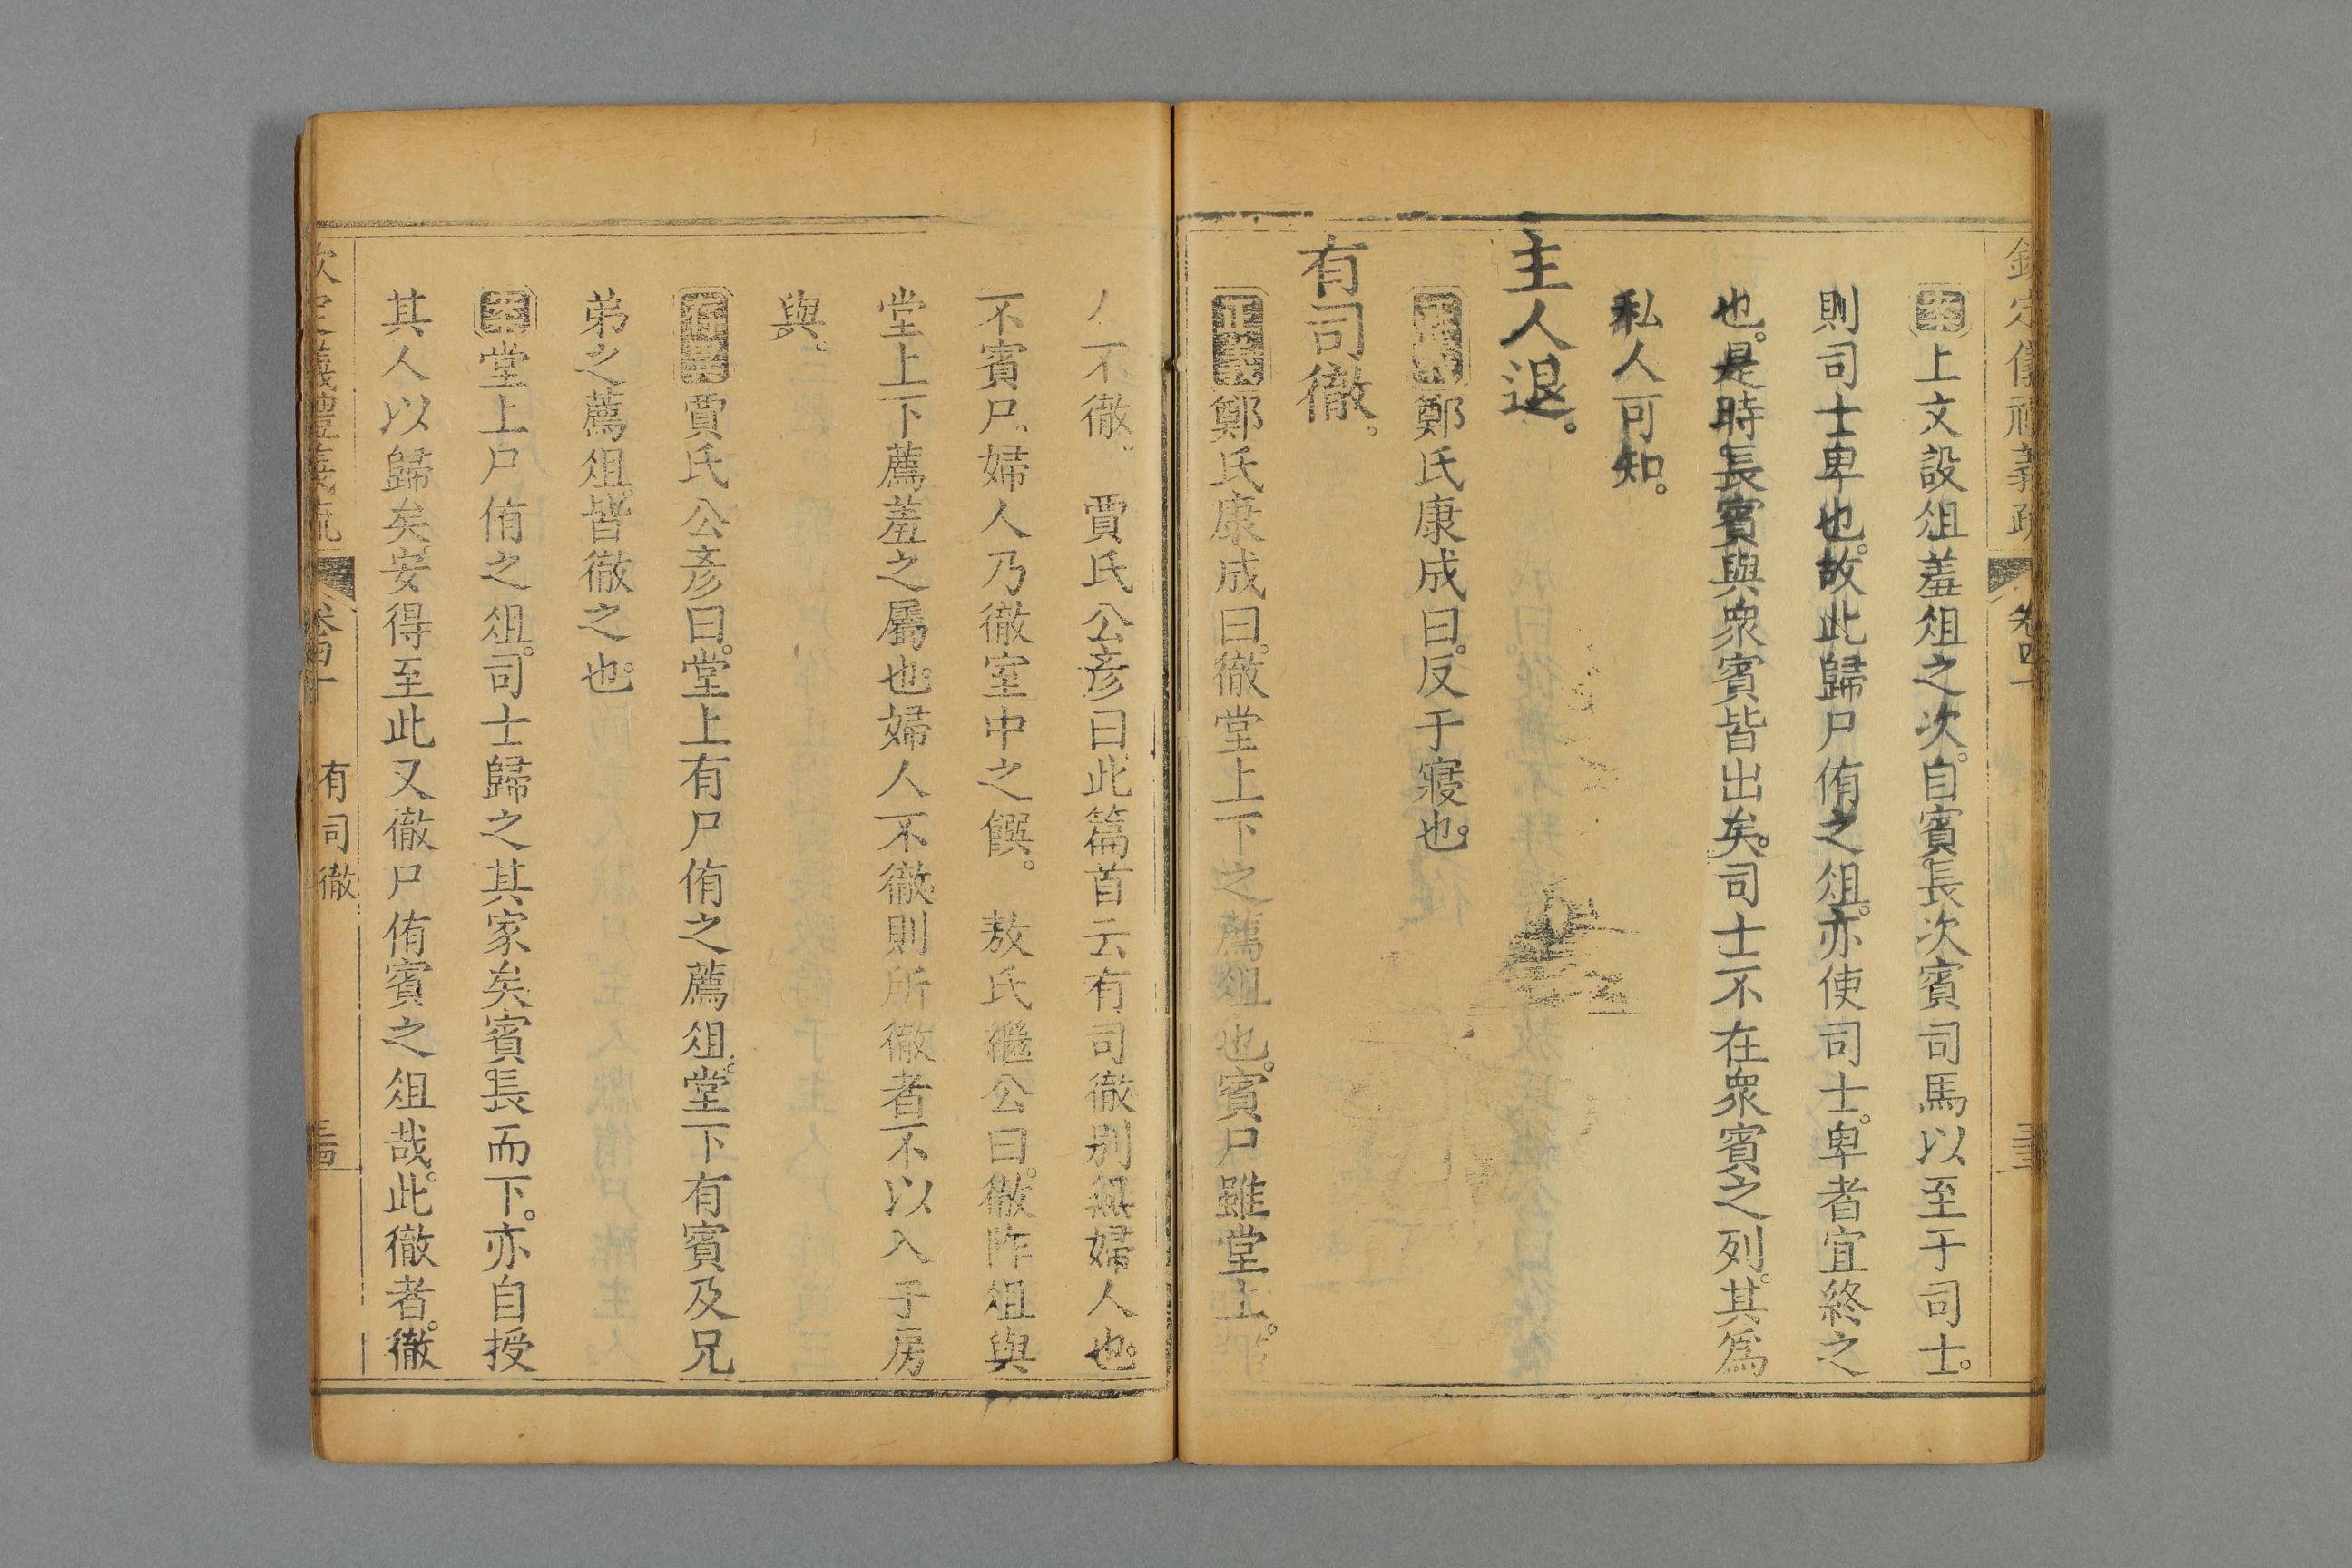 欽定儀禮義疏 卷四十 三十三
案上文設俎羞俎之次。自賓長次賓司馬以至于司士。
則司士卑也。故此歸尸侑之俎。亦使司士。卑者宜終之
也。是時長賓與衆賓皆出矣。司士不在衆賓之列。其爲
私人可知。
主人退。
正義鄭氏康成曰。反于寢也。
有司徹。
正義鄭氏康成曰。徹堂上下之薦俎也。賓尸雖堂上。
人不徹。 賈氏公彥曰此篇首云有司徹別無婦人也。
不賓尸。婦人乃徹室中之饌。 敖氏繼公曰。徹阼俎與
堂上下薦羞之屬也。婦人不徹。則所徹者不以入于房
與。
賈氏公彥曰。堂上有尸侑之薦俎。堂下有賓及兄
弟之薦俎。皆徹之也。
案堂上尸侑之俎。司士歸之其家矣。賓長而下。亦自授
其人以歸矣。安得至此又徹尸侑賓之俎哉。此徹者。徹
欽定儀禮義疏 卷四十 有司徹 三十四